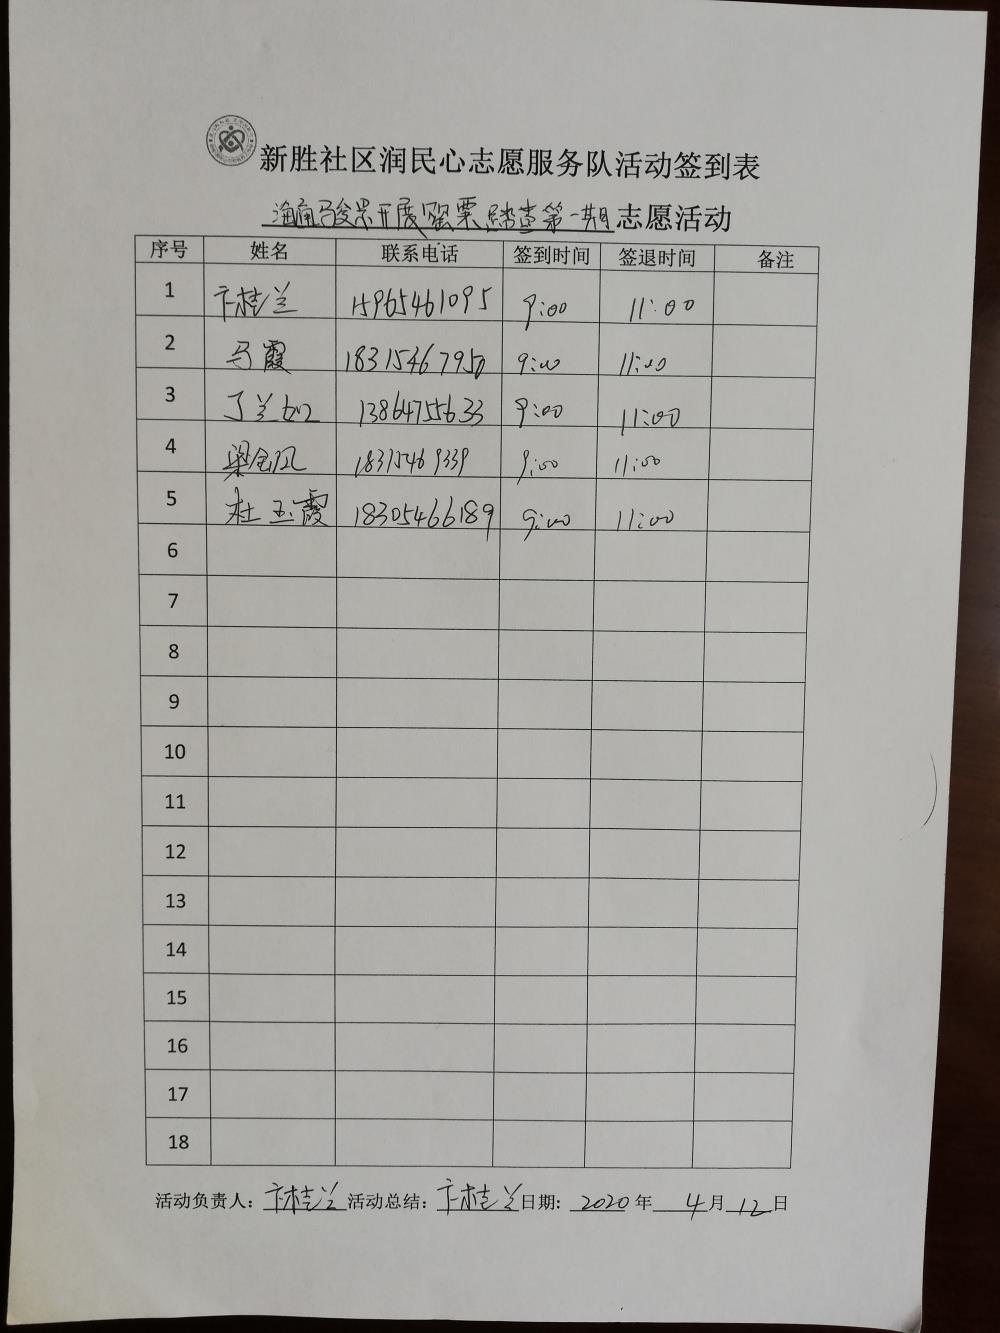 新胜社区润民心志愿服务队活动签到表
海通骏景开展罂粟踏查第一期志愿活动
序号 姓名 联系电话 签到时间 签退时间 备注
1 卞桂兰 15965461095 9:00 11:00
2 马霞 18315467950 9:00 11:00
3 丁兰如 13864755633 9:00 11:00
4 梁金凤 18315469339 9:00 11:00
5 杜玉霞 18305466189 9:00 11:00
6
7
8
9
10
11
12
13
14
15
16
17
18
活动负责人：卞桂兰 活动总结：卞桂兰 日期：2020年4月12日